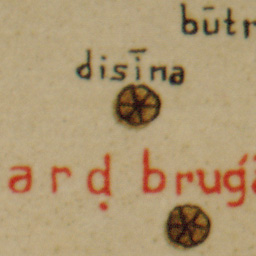 būtr
disīna
arḍ bruǵā